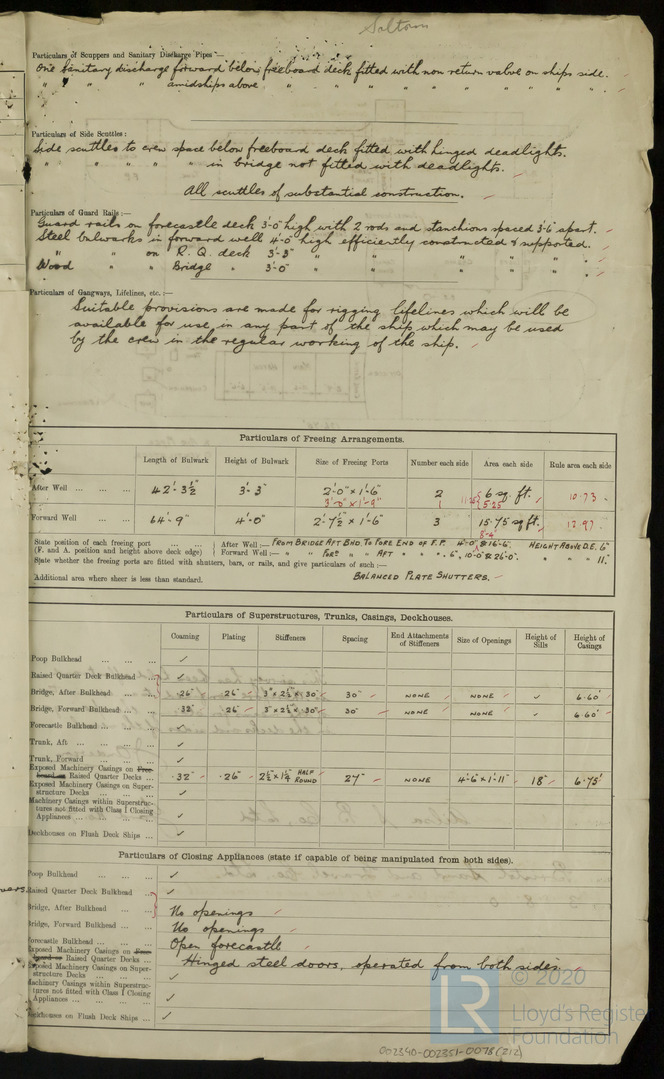 Saltom
Particulars of Scuppers and Sanitary Discharge Pipes :—
One Sanitary discharge forward below freeboard deck fitted with non return valve on ships side.
" " " amidships above " " " " " " " " "
Particulars of Side Scuttles :
Side scuttles to crew space below freeboard deck fitted with hinged deadlights.
" " " " " in bridge not fitted with deadlights.
All scuttles of substantial construction.
Particulars of Guard Rails :—
Guard rails on forecastle deck 3'-0" high with 2 rods and stanchions spaced 3'-6" apart.
Steel bulwarks in forward well 4'-0" high efficiently constructed & supported.
" " on R. Q. deck 3'-3" " " " " "
Wood " " Bridge " 3'-0" " " " "
Particulars of Gangways, Lifelines, etc. :—
Suitable provisions are made for rigging lifelines which will be
available for use in any part of the ship which may be used
by the crew in the regular working of the ship.
Particulars of Freeing Arrangements.
Length of Bulwark Height of Bulwark Size of Freeing Ports Number each side Area each side Rule area each side
After Well ... ... ... 42'-3½" 3'-3" 2'-0" × 1'-6" 2 6 sq. ft. 10.73
3'-0" × 1'-9" 1 11.25 5.25
Forward Well ... ... 64'-9" 4'-0" 2'-7½" × 1'-6" 3 15.75 sq ft. 12.97
State position of each freeing port ... ... After Well :— FROM BRIDGE AFT BHD. TO FORE END OF F.P. 4'-0", 8'-4" & 16'-6". HEIGHT ABOVE D.E. 6"
(F. and A. position and height above deck edge) Forward Well :— " " FORE " " AFT " " ". 6", 10'-0" & 26'-0". " " " 11"
State whether the freeing ports are fitted with shutters, bars, or rails, and give particulars of such :—
BALANCED PLATE SHUTTERS.
Additional area where sheer is less than standard.
Particulars of Superstructures, Trunks, Casings, Deckhouses.
Coaming Plating Stiffeners Spacing End Attachments of Stiffeners Size of Openings Height of Sills Height of Casings
Poop Bulkhead ... ... ...
Raised Quarter Deck Bulkhead ...
Bridge, After Bulkhead ... ... .26" .26" 3" × 2½" × .30" 30" NONE NONE 6.60'
Bridge, Forward Bulkhead ... ... .32" .26" 3" × 2½" × .30" 30" NONE NONE 6.60'
Forecastle Bulkhead ... ... ...
Trunk, Aft ... ... ...
Trunk, Forward ... ... ...
Exposed Machinery Casings on Free-
board or Raised Quarter Decks ... .32" .26" 2½" × 1¼" HALF ROUND 27" NONE 4'-6" × 1'-11" 18" 6.75'
Exposed Machinery Casings on Super-
structure Decks ... ... ...
Machinery Casings within Superstruc-
tures not fitted with Class I Closing
Appliances ... ... ...
Deckhouses on Flush Deck Ships ...
Particulars of Closing Appliances (state if capable of being manipulated from both sides).
Poop Bulkhead ... ... ...
Raised Quarter Deck Bulkhead ...
Bridge, After Bulkhead ... ... No openings
Bridge, Forward Bulkhead ... ... No openings
Forecastle Bulkhead ... ... ... Open forecastle
Exposed Machinery Casings on Free-
board or Raised Quarter Decks ... Hinged steel doors, operated from both sides
Exposed Machinery Casings on Super-
structure Decks ... ... ...
Machinery Casings within Superstruc-
tures not fitted with Class I Closing
Appliances ... ... ...
Deckhouses on Flush Deck Ships ...
© 2020
Lloyd's Register
Foundation
LR
002340-002351-0078 (2/2)